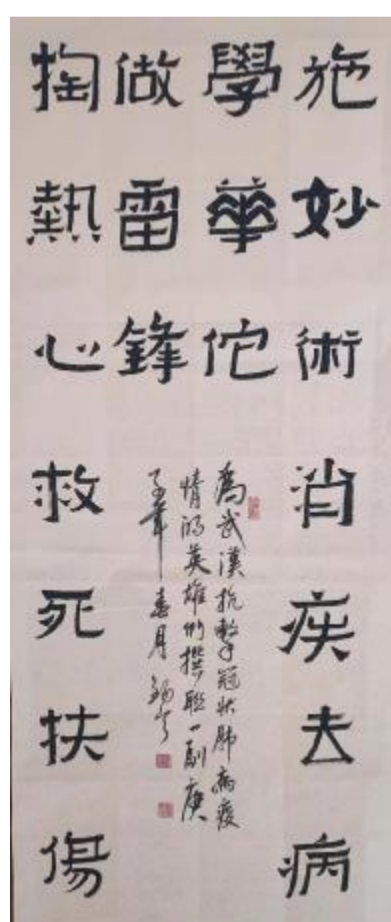 施妙術消疾去病
學華佗
掏熱心救死扶傷
做雷鋒
為武漢抗擊冠狀肺病疫
情的英雄们撰聯一副庚
子年春月